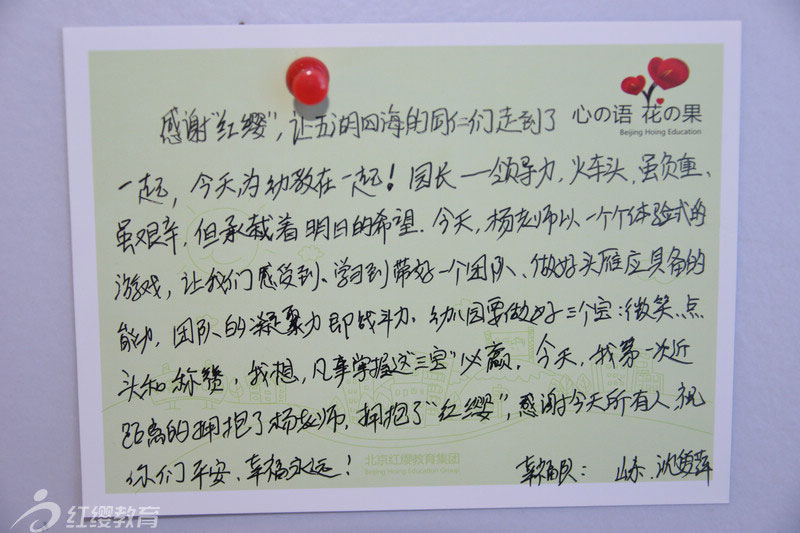 心の语 花の果
Beijing Hoing Education
感谢"红缨"，让五湖四海的同仁们走到了
一起，今天为幼教在一起！园长——领导力，火车头，虽负重、
虽艰辛，但承载着明日的希望。今天，杨老师以一个个体验式的
游戏，让我们感受到、学习到带好一个团队、做好头雁应具备的
能力，团队的凝聚力即战斗力。幼儿园要做好三个宝：微笑、点
头和称赞，我想，凡事掌握这三宝"必赢。今天，我第一次近
距离的拥抱了杨老师，拥抱了"红缨"，感谢今天所有人，祝
你们平安、幸福永远！
幸福队： 山东、沈
北京红缨教育集团
Beijing Hoing Education Group
红缨教育